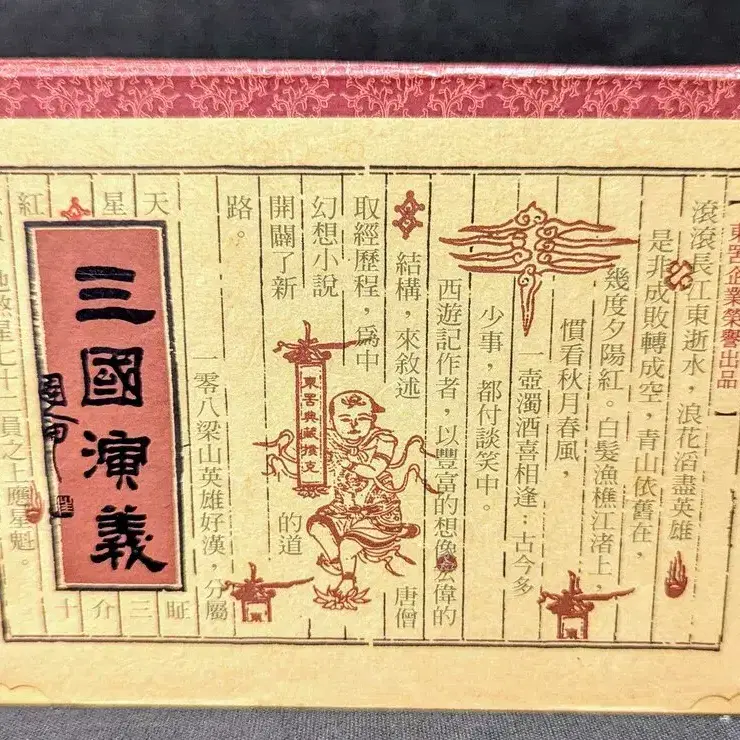 【東企業榮譽出品】
滾滾長江東逝水，浪花滔盡英雄
是非成敗轉成空，青山依舊在，
幾度夕陽紅。白髮漁樵江渚上，
慣看秋月春風，
一壺濁酒喜相逢：古今多
少事，都付談笑中。
西遊記作者，以豐富的想像宏偉的
結構，來敘述
唐僧
取經歷程，爲中
幻想小說
開闢了新
的道
路。
東典藏撲克
一零八梁山英雄好漢，分屬
天
星
紅
三國演義
地煞星七十二員之上應星魁。
三
介
十
東
東